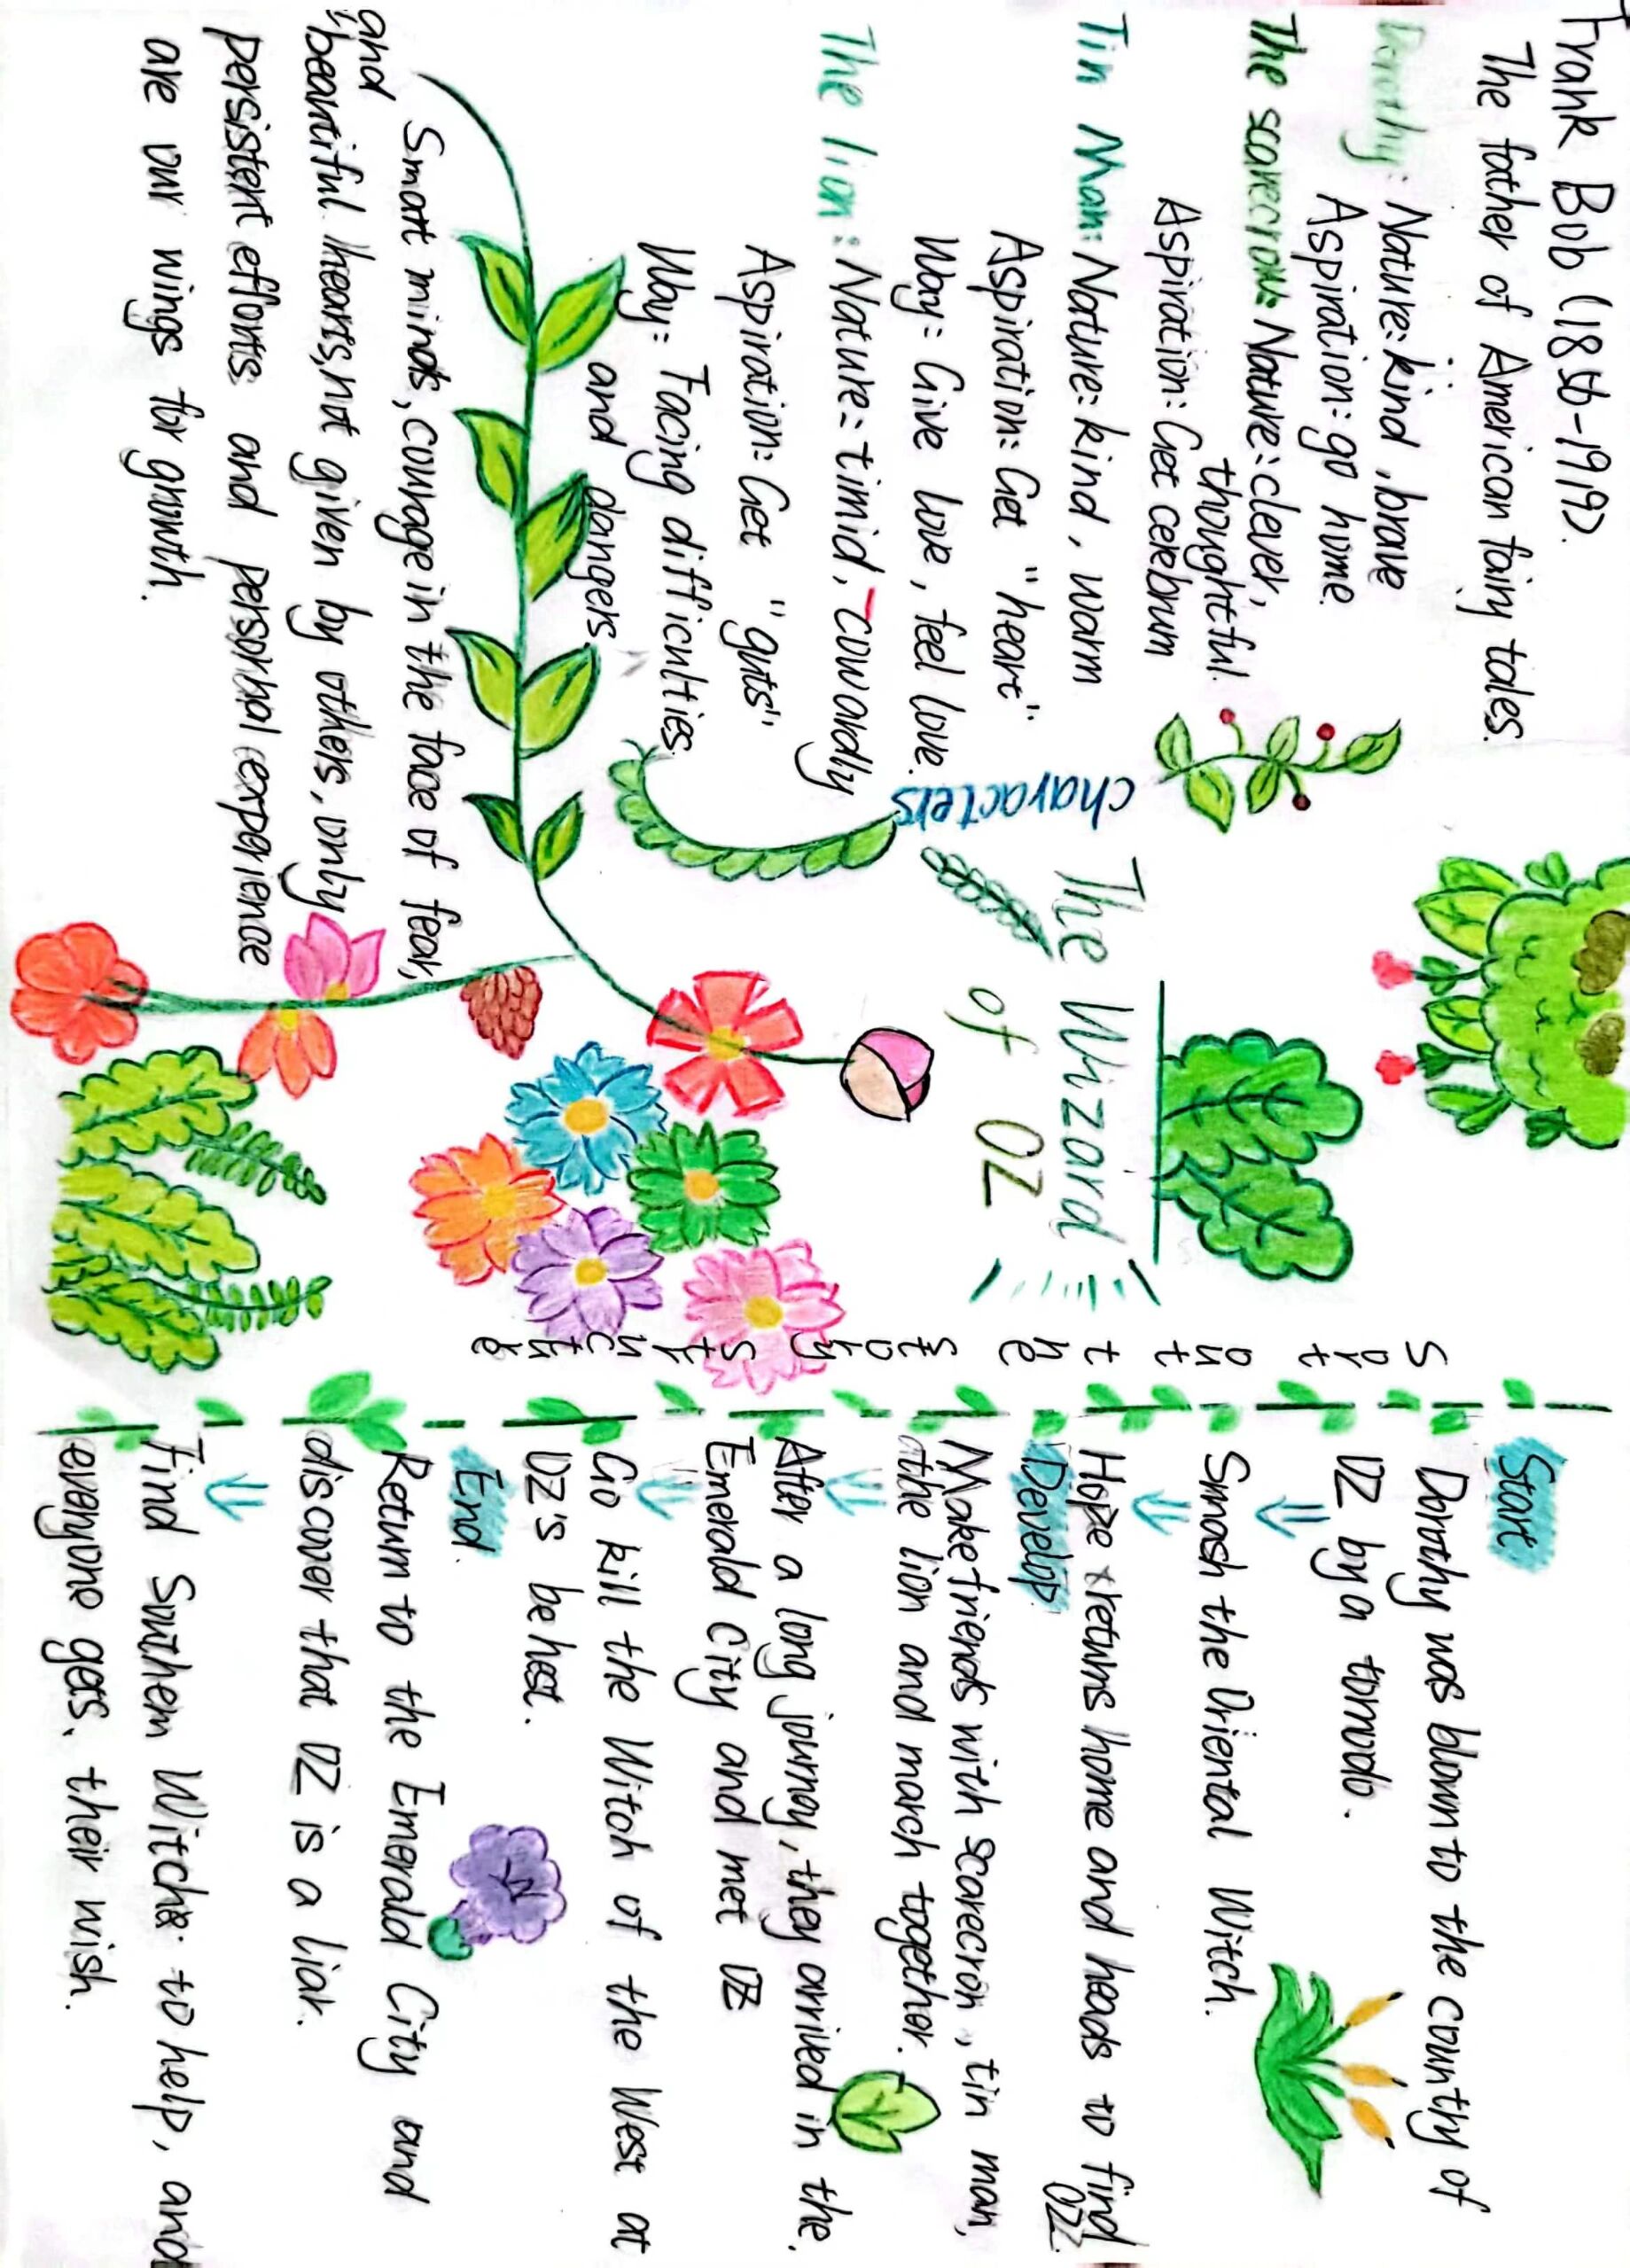 Frank Bob (1856-1919).
The father of American fairy tales.
Dorothy: Nature: kind, brave
Aspiration: go home.
The scarecrow: Nature: clever,
thoughtful.
Aspiration: Get celebrum
Tin Man: Nature: kind, warm
Aspiration: Get "heart"
Way: Give love, feel love.
The lion: Nature: timid, cowardly
Aspiration: Get "guts"
Way: Facing difficulties
and dangers
Smart minds, courage in the face of fear,
and
beautiful hearts, not given by others, only
persistent efforts and personal experience
are our wings for growth.
characters
The Wizard
of OZ
Sort out the story structure
Start
Dorothy was blown to the country of
OZ by a tornado.
⇓
Smash the Oriental Witch.
⇓
Hope returns home and heads to find
OZ.
Develop
Make friends with scarecrow, tin man,
the lion and march together.
⇓
After a long journey, they arrived in the
Emerald City and met OZ
⇓
Go kill the Witch of the West at
OZ's behest.
End.
Return to the Emerald City and
discover that OZ is a liar.
⇓
Find Southern Witch to help, and
everyone gets their wish.